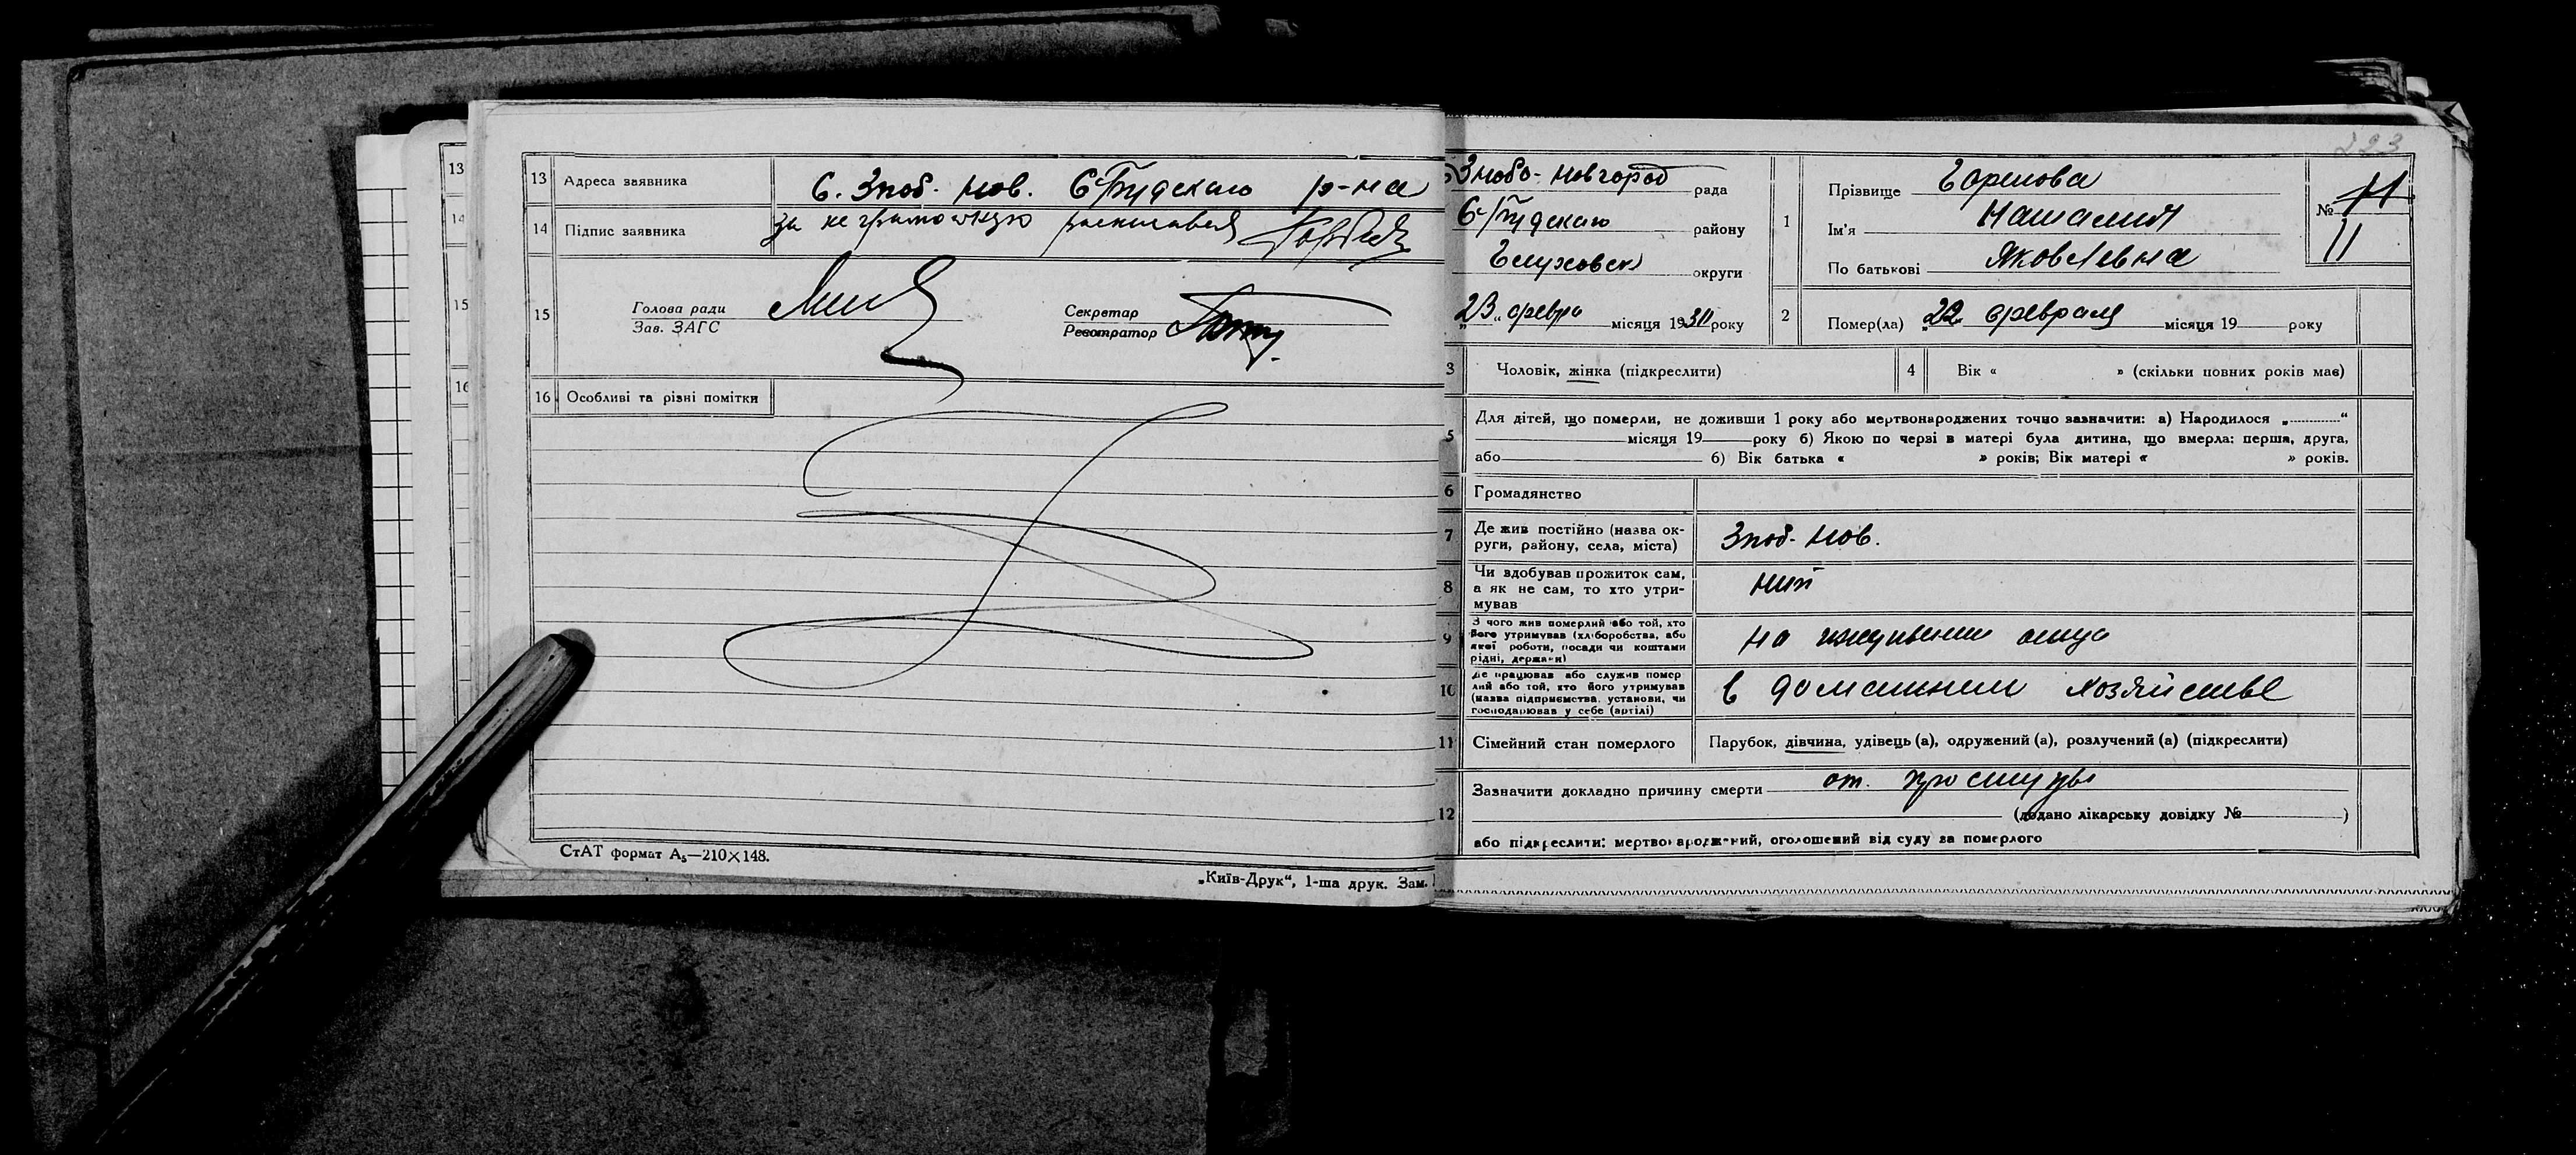 13
14
15
16
13 Адреса заявника С. Зноб. Нов. С/Будского р-на
14 Підпис заявника за неграмотную расписався
15 Голова ради
Зав. ЗАГС
Секретар
Реєстратор
16 Особливі та різні помітки
СтАТ формат А₅—210×148.
„Київ-Друк“, 1-ша друк. Зам.
223
Знобо-Новгород рада
С/Будского району
Глуховск округи
„23“ февра місяця 1930 року
1 Прізвище
Ім'я Наталия
По батькові Яковлевна
№ 11
11
2 Помер(ла) „22 февраля місяця 19 року
3 Чоловік, жінка (підкреслити)
4 Вік « » (скільки повних років мав)
5 Для дітей, що померли, не доживши 1 року або мертвонароджених точно зазначити: а) Народилося „ “
місяця 19 року б) Якою по черзі в матері була дитина, що вмерла: перша, друга,
або б) Вік батька « » років; Вік матері « » років.
6 Громадянство
7 Де жив постійно (назва ок-
руги, району, села, міста) Зноб-Нов.
8 Чи вдобував прожиток сам,
а як не сам, то хто утри-
мував нит
9 З чого жив померлий або той, хто
його утримував (хліборобства, або
якої роботи, посади чи коштами
рідні, держави) на иждивении отца
10 Де працював або служив помер
лий або той, хто його утримував
(назва підприємства, установи, чи
господарював у себе (артілі) в домашнем хозяйстве
11 Сімейний стан померлого Парубок, дівчина, удівець (а), одружений (а), розлучений (а) (підкреслити)
12 Зазначити докладно причину смерти от простуды
(додано лікарську довідку № )
або підкреслити: мертвонароджений, оголошений від суду за померлого